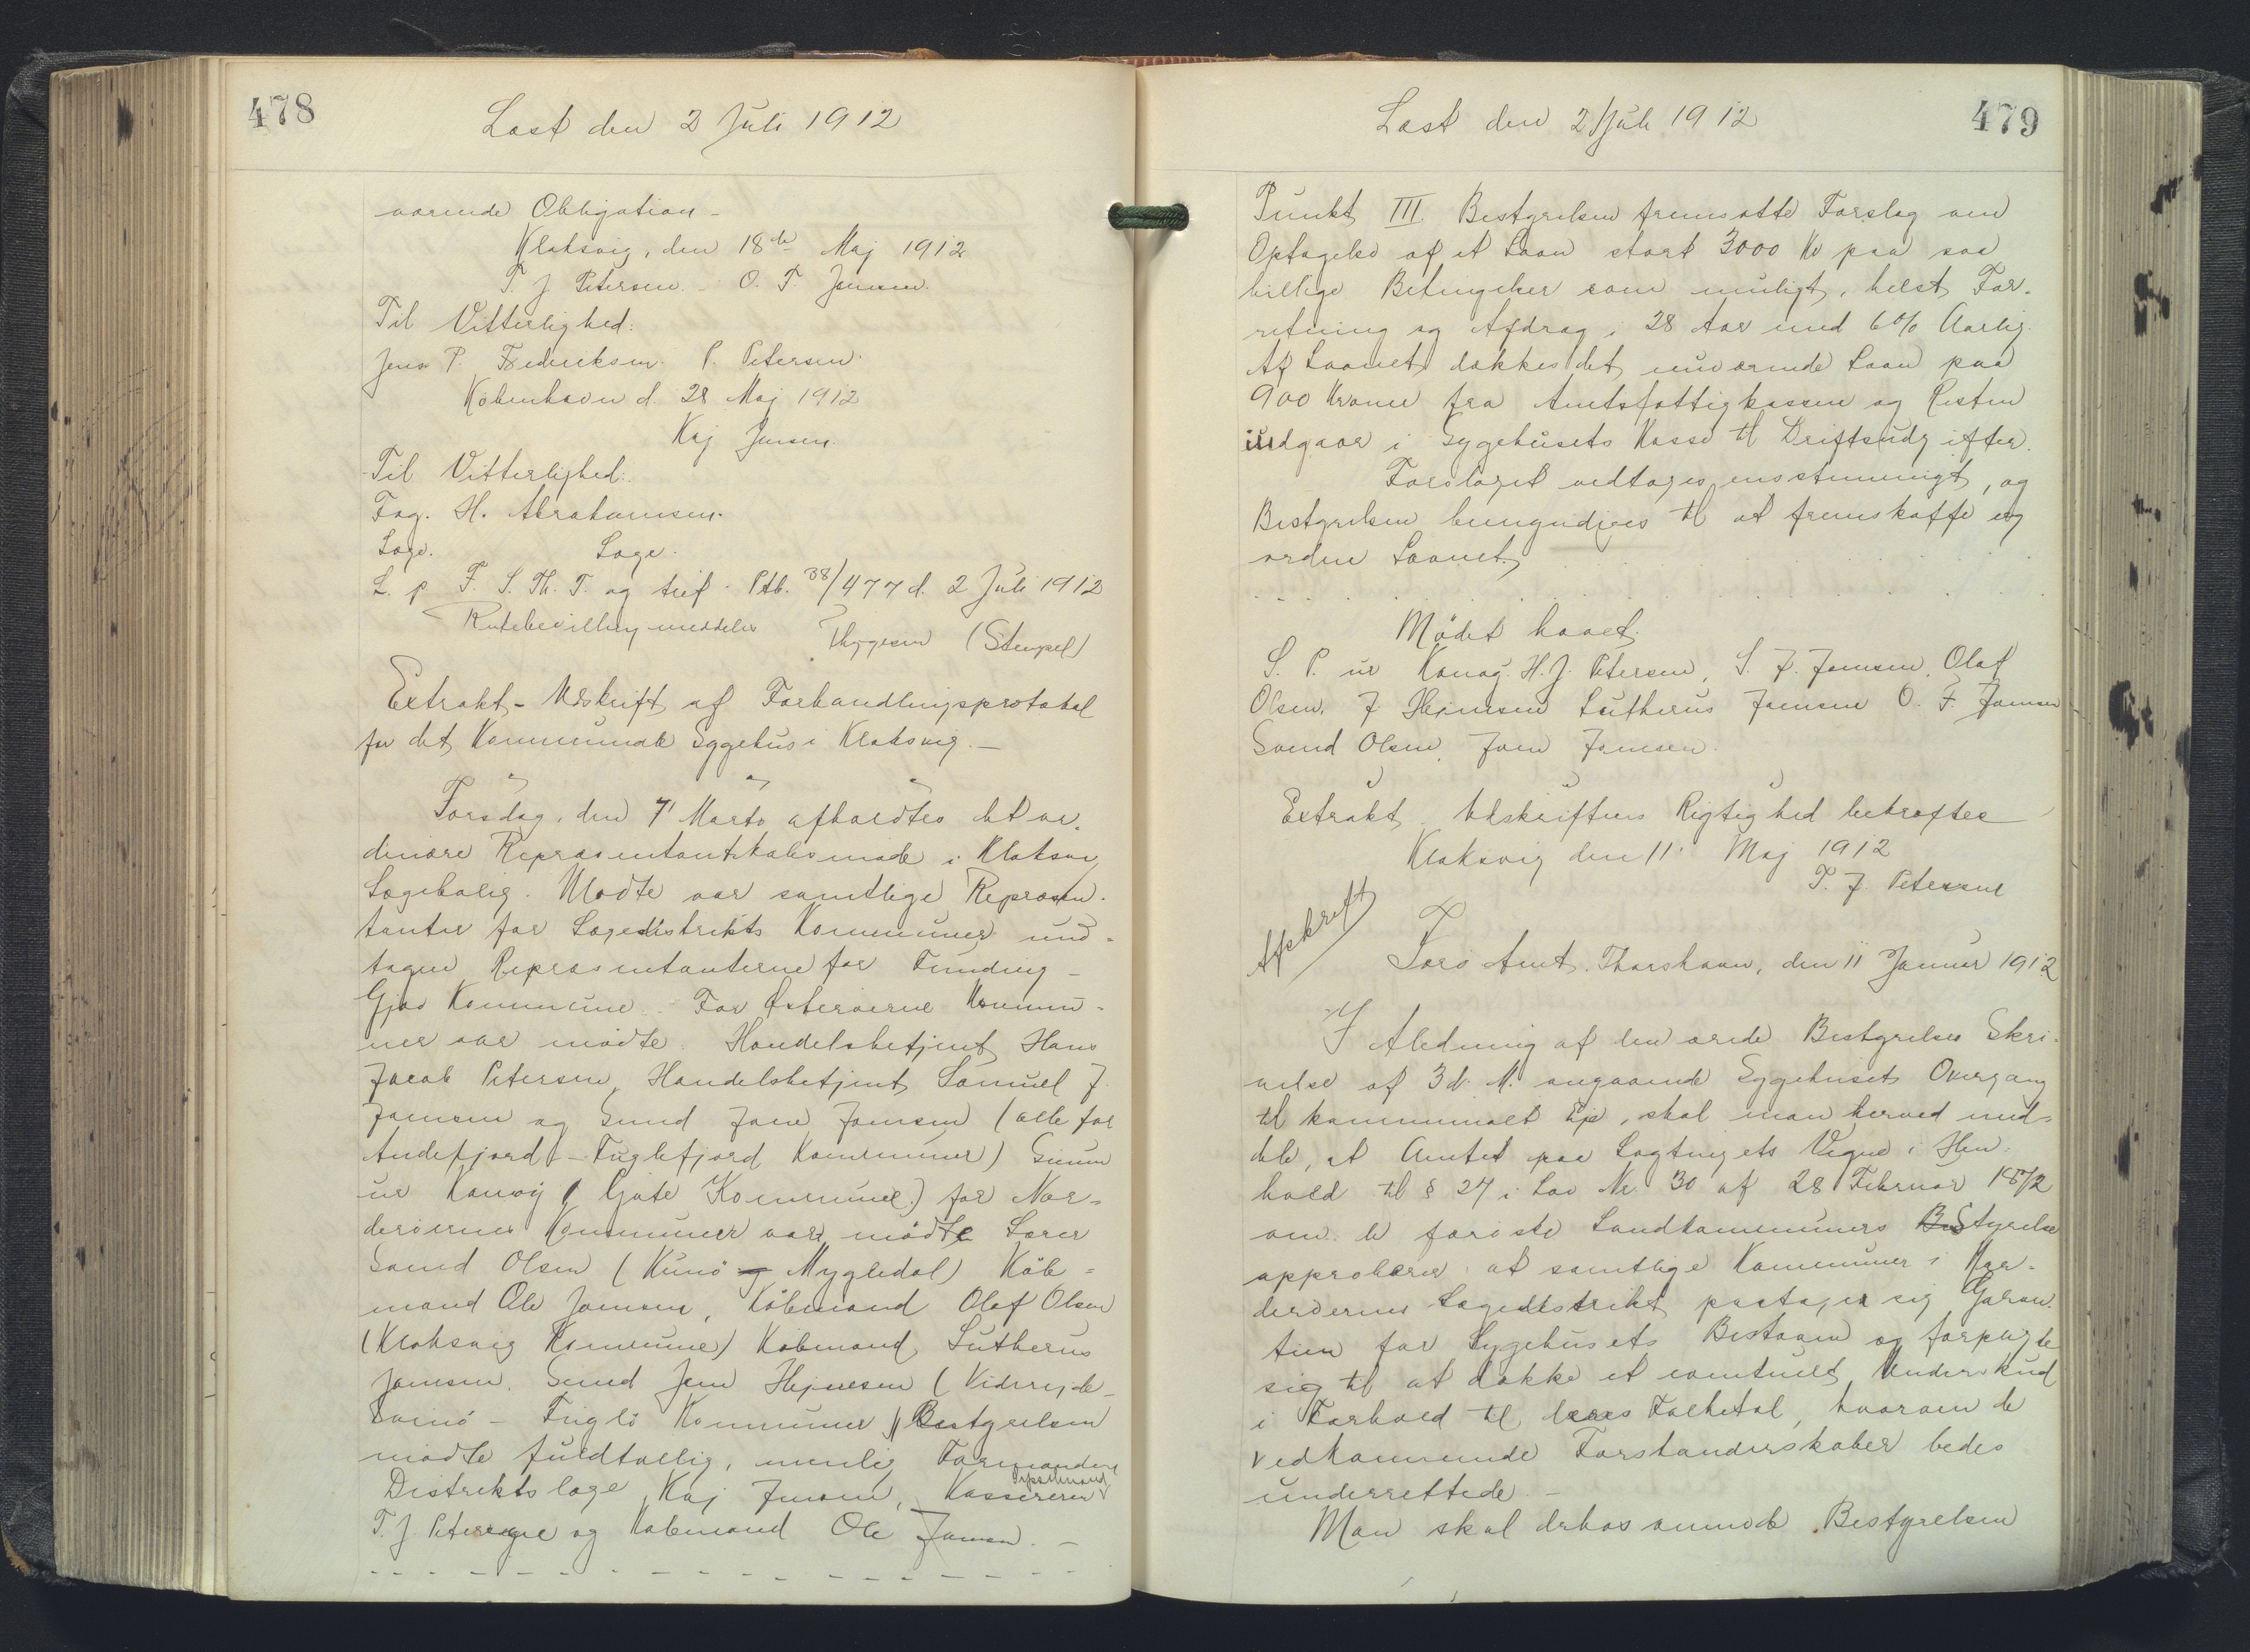 478
Læst den 2 Juli 1912
værende Obligation -
Klaksvig, den 18de Maj 1912
T. J Petersen. - O. F. Joensen.
Til Vitterlighed:
Jens P. Frederiksen. P. Petersen.
København d. 28 Maj 1912
Kaj Jensen
Til Vitterlighed:
Fog. H. Abrahamsen.
Læge. Læge.
L. p F. S. Th. T. og tref. Ptb. 38/477 d. 2 Juli 1912
Rutebevilling meddeles Thygesen (Stempel)
Extrakt - Udskrift af Forhandlingsprotokol
for det Kommunale Sygehus i Klaksvig. -
Torsdag, den 7' Marts afholdtes det or-
dinære Repræsentantskabsmøde i Klaksvig
Lægebolig. Mødte var samtlige Repræsen-
tanter for Lægedistrikts Kommuner und-
tagen Repræsentanterne for Funding -
Gjov Kommune. - For Østerøerne Kommu-
ner var mødte. Handelsbetjent Hans
Jacob Petersen, Handelsbetjent Samuel J.
Joensen og Smed Joen Joensen (alle for
Andefjord - Fuglefjord Kommuner) Simun
ur Konoy (Gøte Kommune.) for Nor-
derøernes Kommuner vare mødte Lærer
Svend Olsen (Kunø og Mygledal) Køb-
mand Ole Joensen, Købmand Olaf Olsen
(Klaksvig Kommune) Købmand Lutherus
Joensen. Smed Joen Hejnesen (Viderejde-
Svinø - Fuglø Kommuner) Bestyrelsen
mødte fuldtallig, nemlig Formanden
Distriktslæge Kaj Jensen, Kassereren
T. J. Petersen og Købmand Ole Joensen. -
479
Læst den 2 Juli 1912
Punkt III. Bestyrelsen fremsatte Forslag om
Optagelse af et Laan stort 3000 Kr paa saa
billige Betingelser som muligt, helst For-
retning og Afdrag i 28 Aar med 6% Aarlig.
Af Laanet dækkes det nuværende Laan paa
900 Kroner fra Amtsfattigkassen og Resten
indgaar i Sygehusets Kasse til Driftsudgifter.
Forslaget vedtages enstemmigt, og
Bestyrelsen bemyndiges til at fremskaffe og
ordne Laanet.
Mødet hævet.
S. P. ur Konoy. H. J. Petersen, S. J. Joensen, Olaf
Olsen. J Hejnesen Lutherus Joensen O. F. Joensen
Svend Olsen, Joen Joensen.
Extrakt Udskriftens Rigtighed bekræftes
Klaksvig den 11' Maj 1912
T. J. Petersen
Afskrift
Færø Amt. Thorshavn, den 11 Januar 1912
I Anledning af den ærede Bestyrelses Skri-
velse af 3 d. M. angaaende Sygehusets Overgang
til kommunalt Eje, skal man herved med-
dele, at Amtet paa Lagtingets Vegne i Hen-
hold til § 27 i Lov Nr. 30 af 28 Februar 1872
om de færøske Landkommuners Styrelse
approberer at samtlige Kommuner i Nor-
derøernes Lægedistrikt paatager sig Garan-
tien for Sygehusets Bestaaen og forpligte
sig til at dække et eventuelt Underskud
i Forhold til deres Folketal, hvorom de
vedkommende Forstanderskaber bedes
underrettede. -
Man skal derhos anmode Bestyrelsen